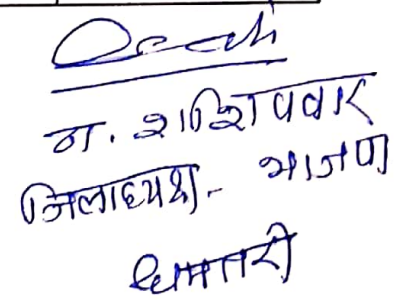 शशि पवार
जिलाध्यक्ष - भाजपा
धमतरी